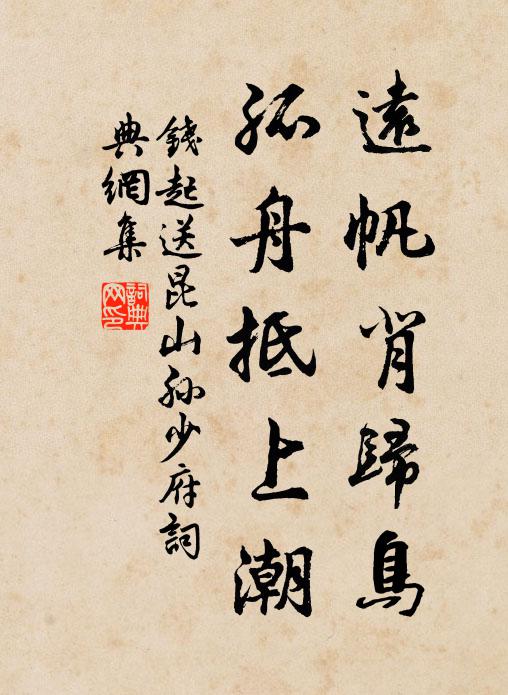 遠帆背歸鳥
孤舟抵上潮
錢起送昆山孫少府詞
典網集
詞典
网印